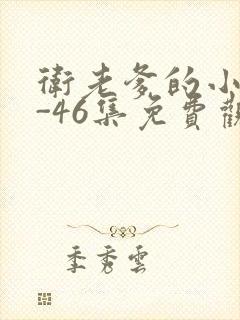 衛老爹的小
-46集免費觀
季秀雲